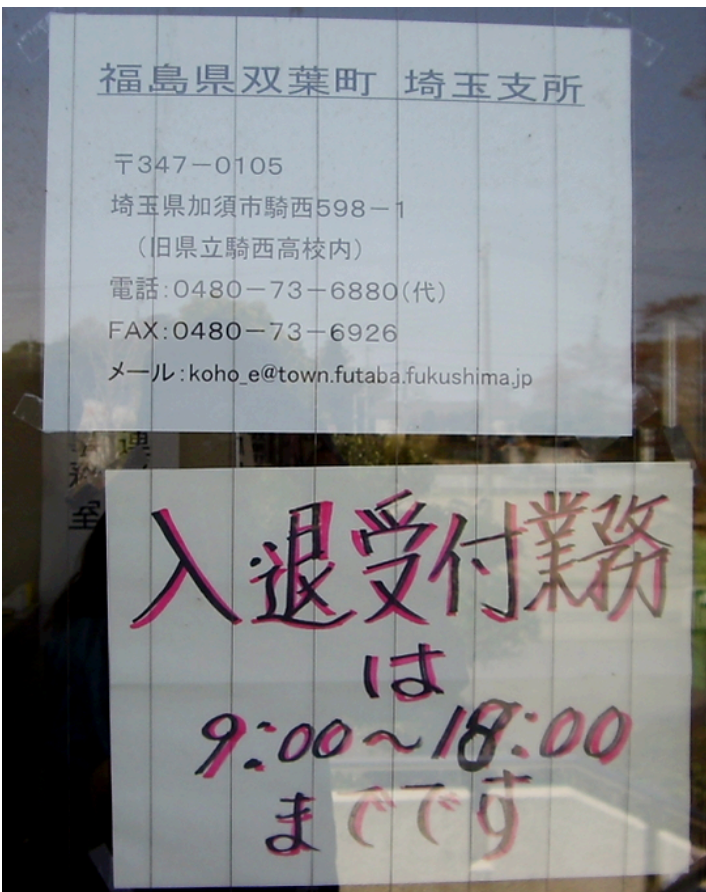 福島県双葉町 埼玉支所
〒347－0105
埼玉県加須市騎西598－1
（旧県立騎西高校内）
電話：0480－73－6880（代）
FAX：0480－73－6926
メール：koho_e@town.futaba.fukushima.jp
入退受付業務
は
9:00～18:00
までです